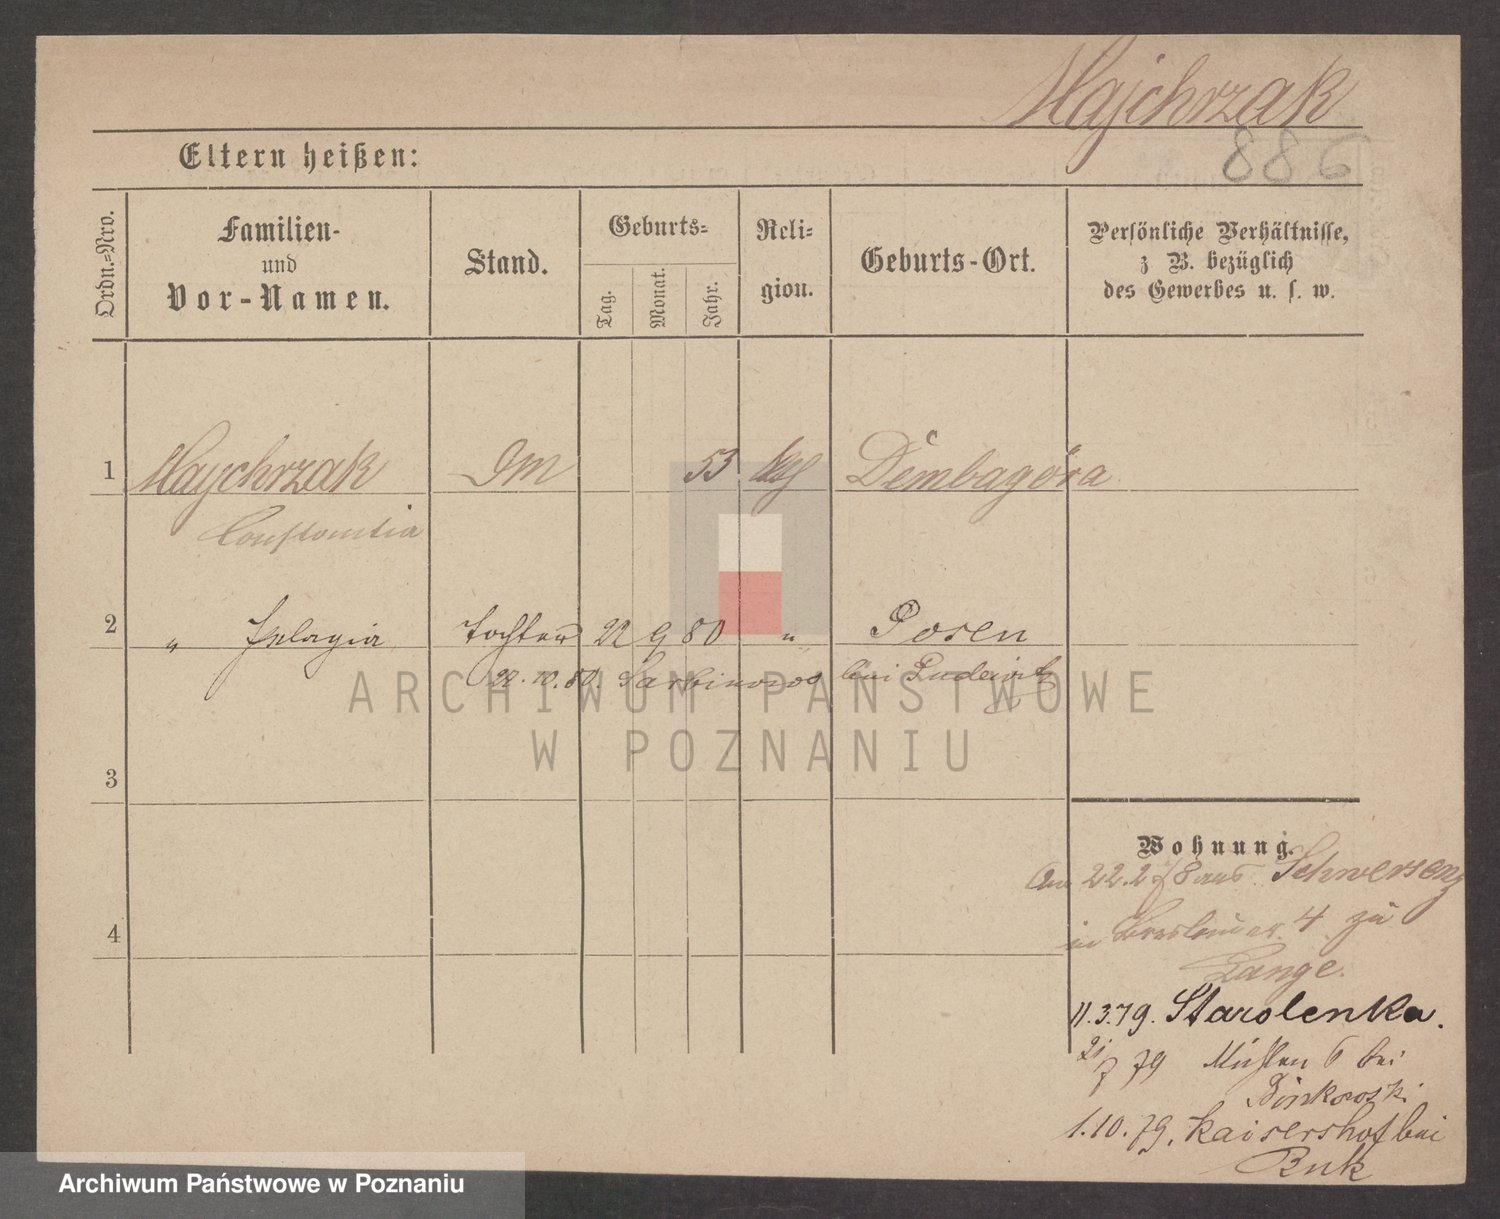 Majchrzak
886
Eltern heißen:
Ordn.=Nro.
Familien-
und
Vor-Namen.
Stand.
Geburts=
Tag.
Monat.
Jahr.
Reli-
gion.
Geburts-Ort.
Persönliche Verhältnisse,
z B. bezüglich
des Gewerbes u. s. w.
1 Majchrzak 53 kth Dembagóra
Constantia
2 " Pelagia Tochter 22 9 80 " Posen
22.10.80. Sarbinowo bei Pudewitz
ARCHIWUM PAŃSTWOWE
W POZNANIU
3
Wohnung.
Am 22.2.78 aus Schwersenz
in Breslauer 4 zu
4
Lange.
11.3.79. Starolenka.
21/7 79 Mühlen 6 bei
Binkowski
1.10.79. Kaisershof bei
Buk
Archiwum Państwowe w Poznaniu